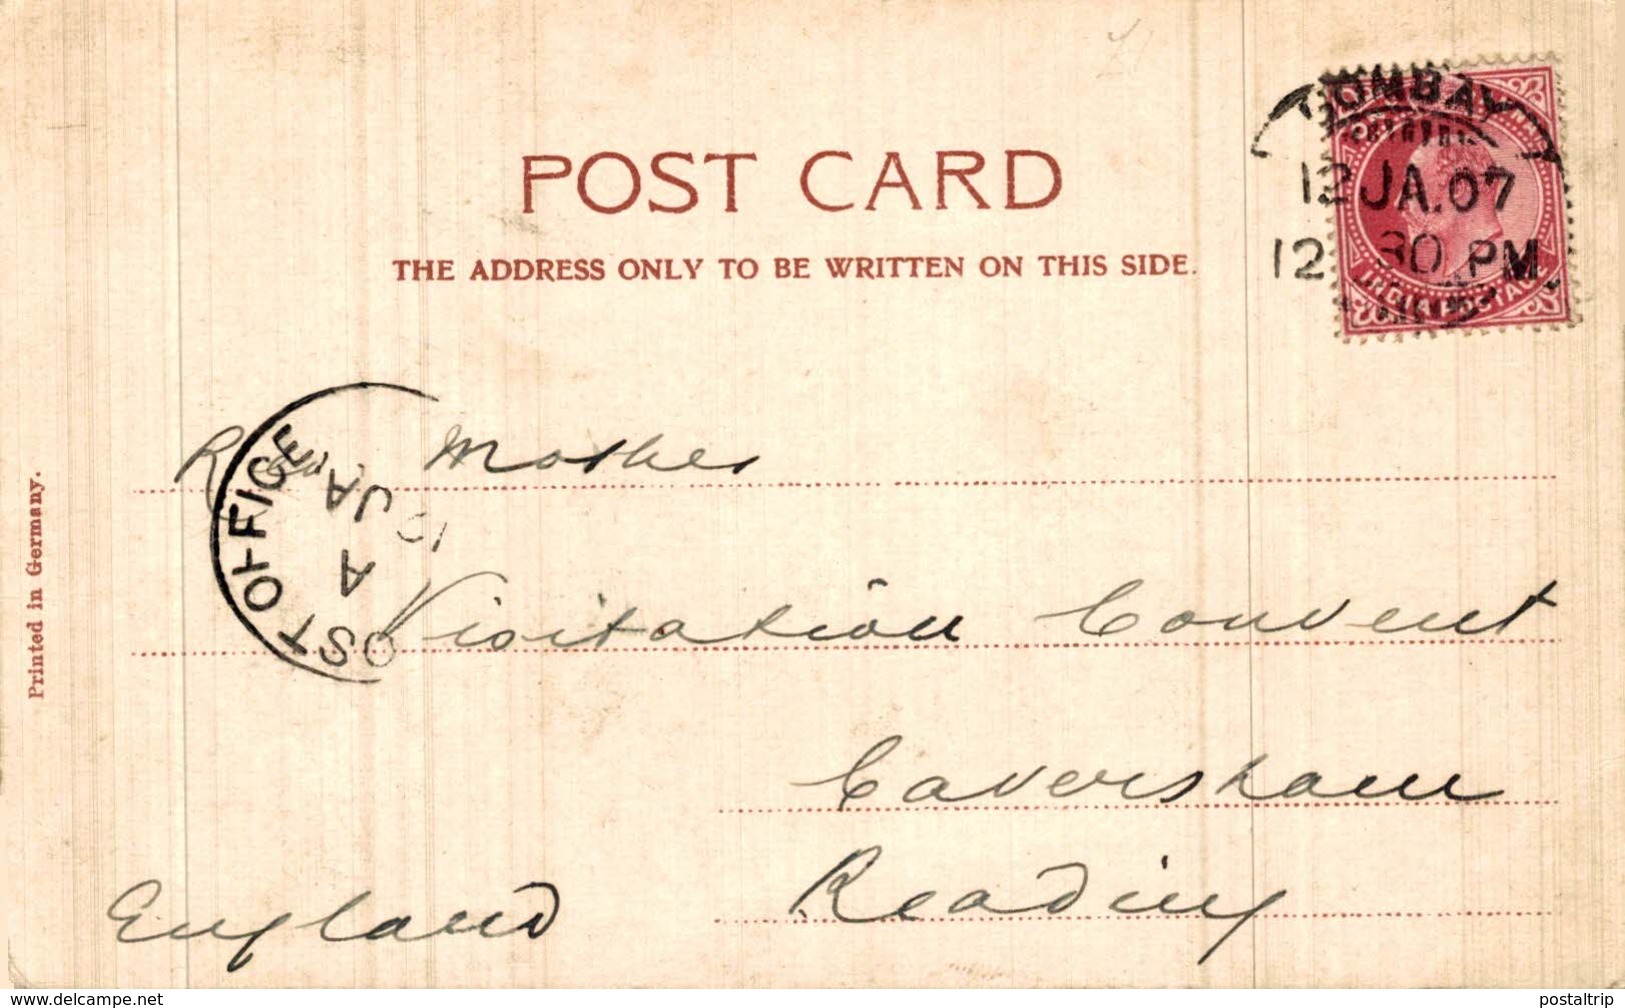 POST CARD
THE ADDRESS ONLY TO BE WRITTEN ON THIS SIDE.
BOMBAY
12 JA.07
12 30 PM
INDIA POSTAGE
POST OFFICE
A
JA
Mother
Visitation Convent
Caversham
Reading
England
Printed in Germany.
www.delcampe.net
postaltrip